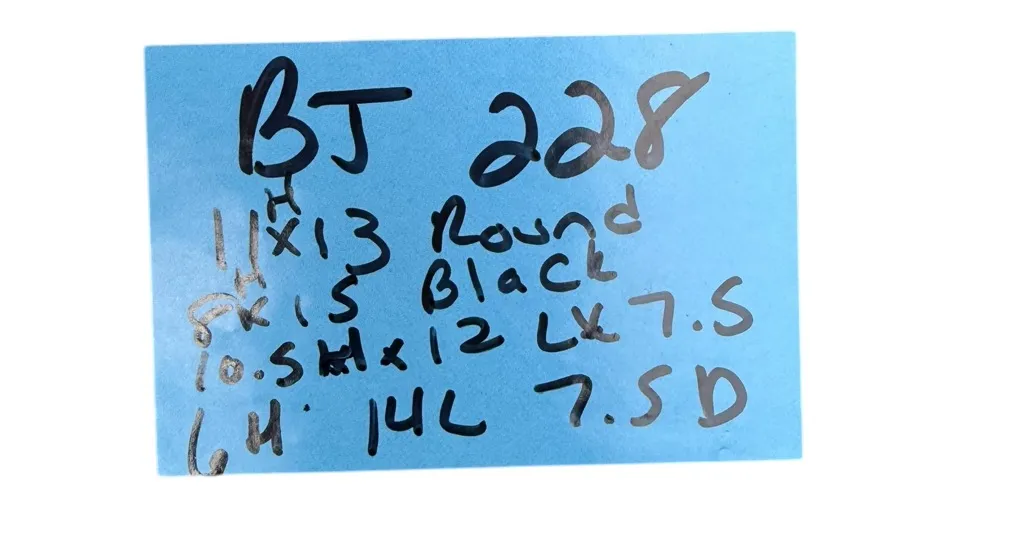 BJ 228
11H x 13 Round
8H x 15 Black
10.5 H x 12 L x 7.5
6H 14L 7.5 D